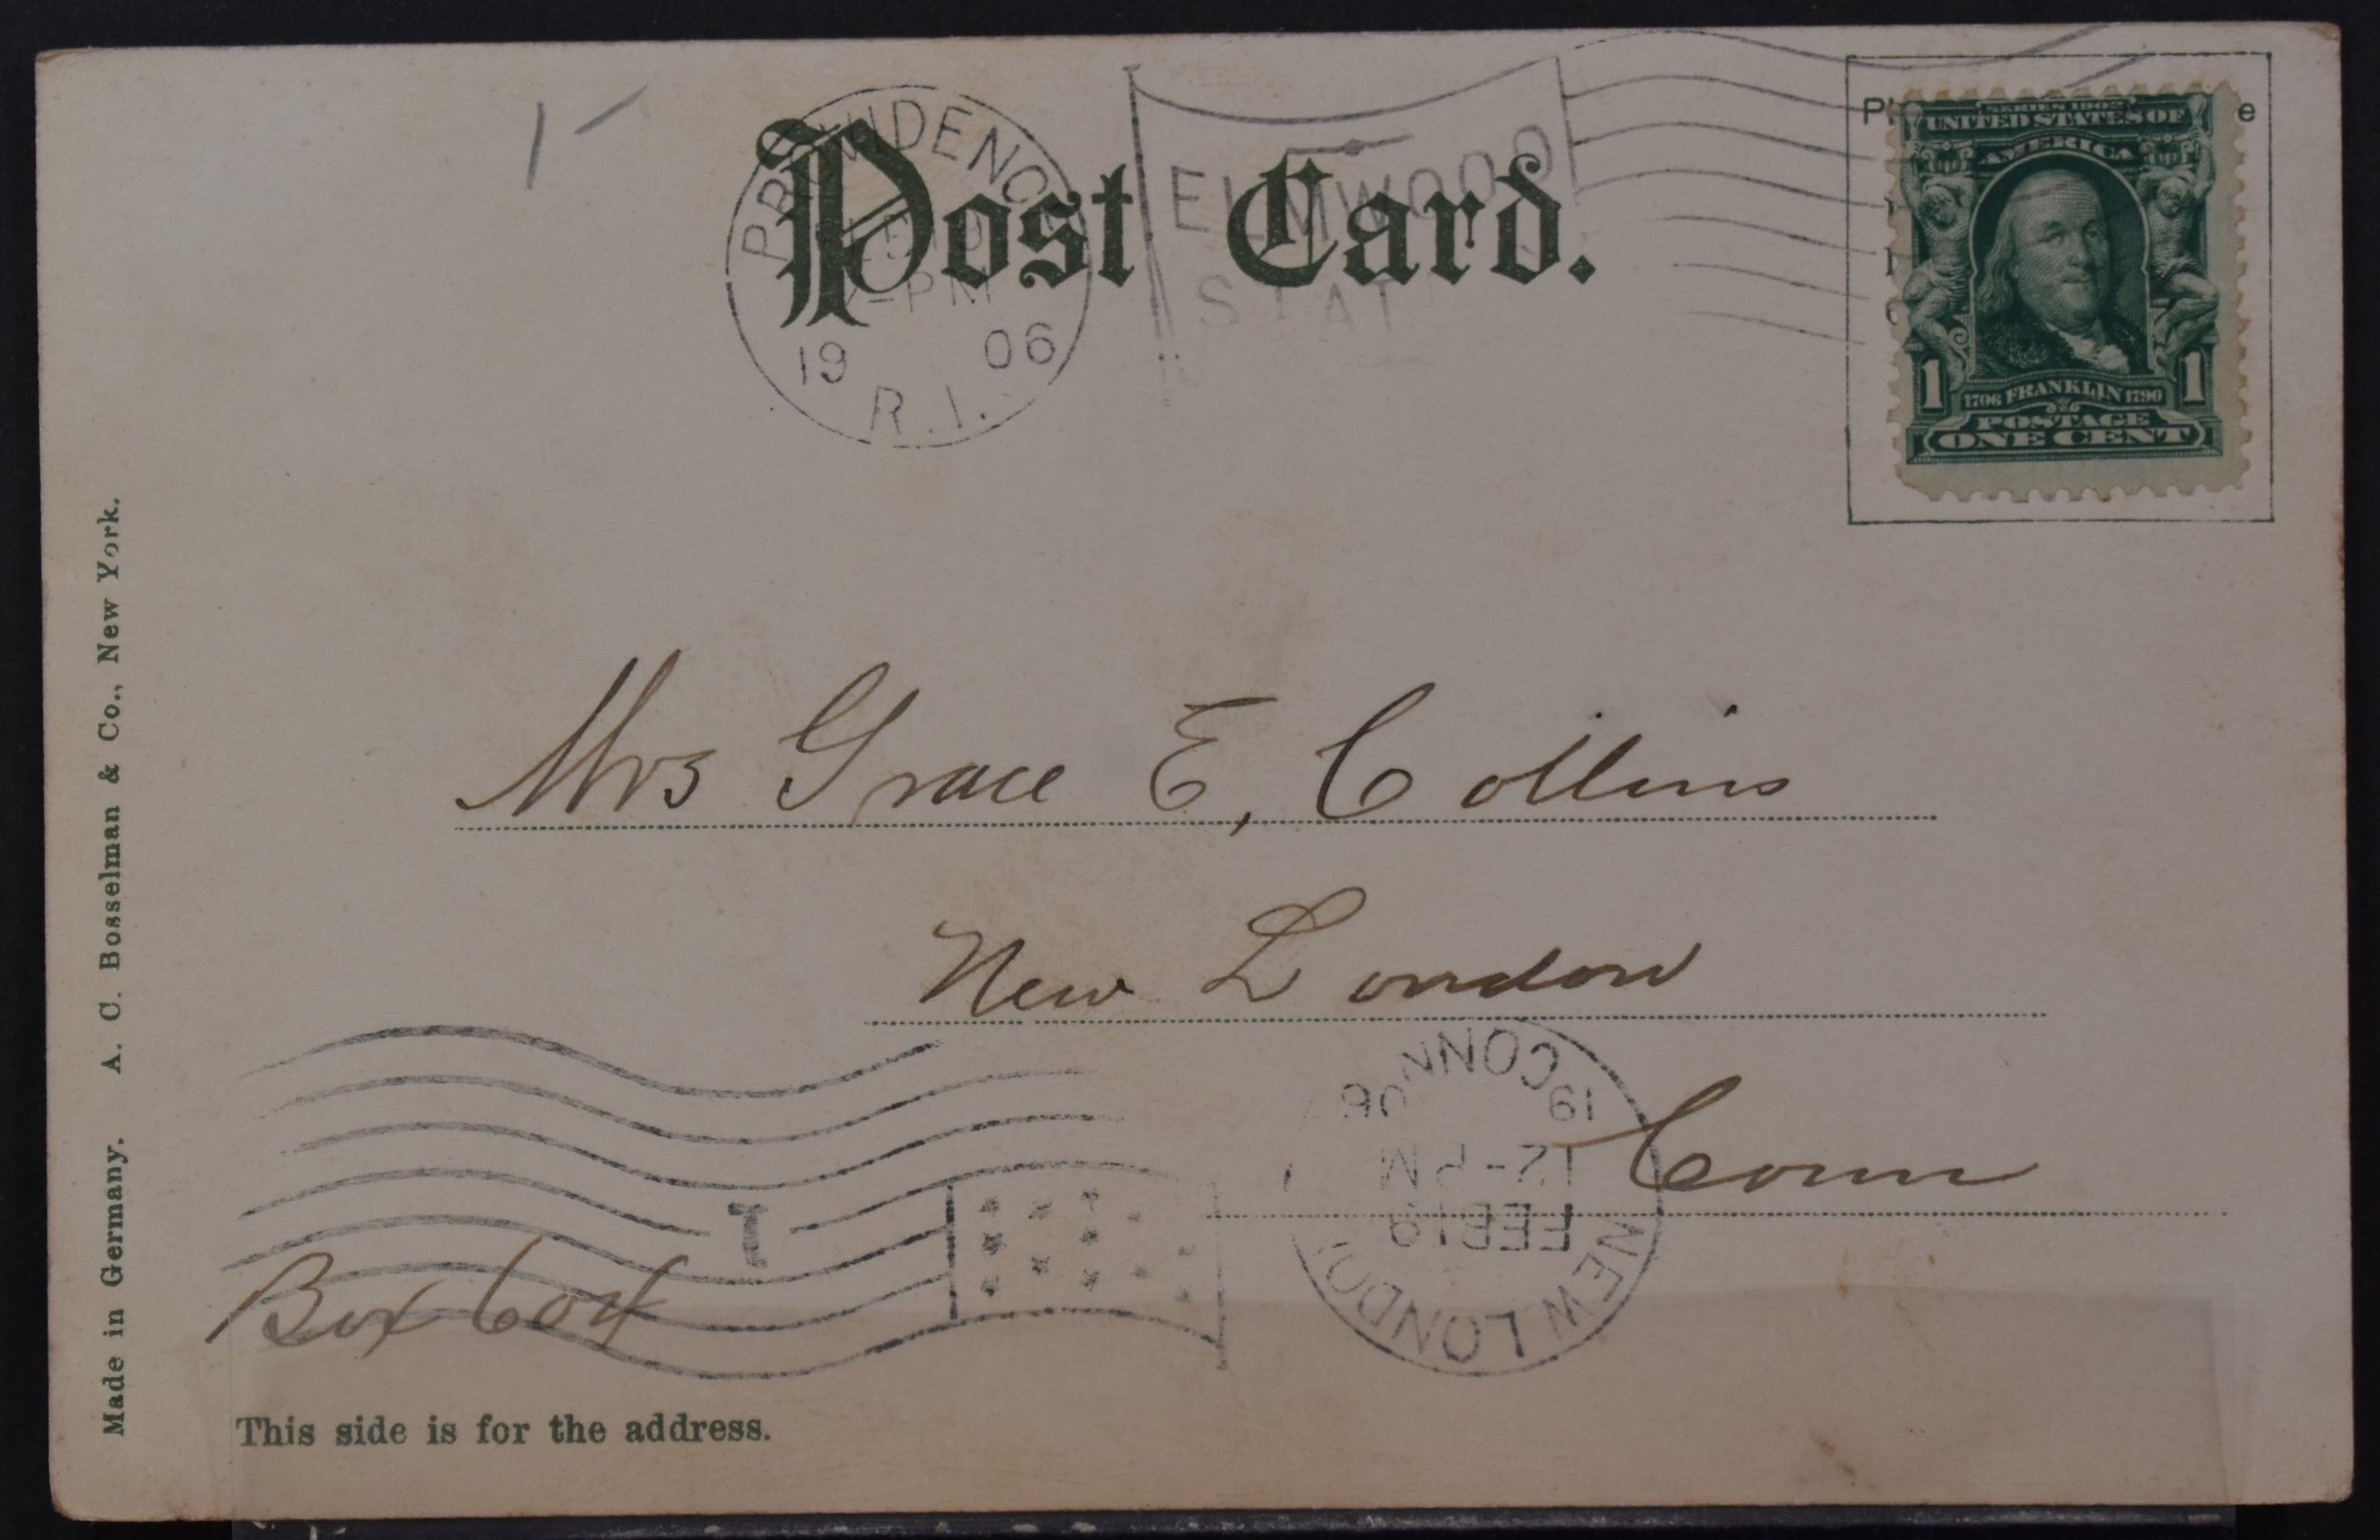 Post Card.
PROVIDENCE
19 06
R.I.
ELMWOOD
STAT
SERIES 1902
UNITED STATES OF
AMERICA
1 1
1706 FRANKLIN 1790
POSTAGE
ONE CENT
Mrs Grace E, Collins
New London
Conn
NEW LONDON
FEB 19
12-PM
19 06
CONN
1
Box 604
This side is for the address.
Made in Germany. A. C. Bosselman & Co., New York.